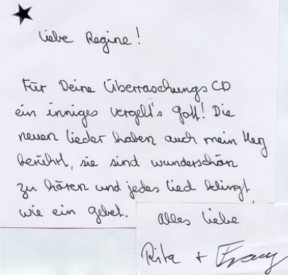 Liebe Regine!
Für Deine Überraschungs CD
ein inniges Vergelt's Gott! Die
neuen Lieder haben auch mein Herz
berührt, sie sind wunderschön
zu hören und jedes Lied klingt
wie ein Gebet.
Alles Liebe
Rita + Franz